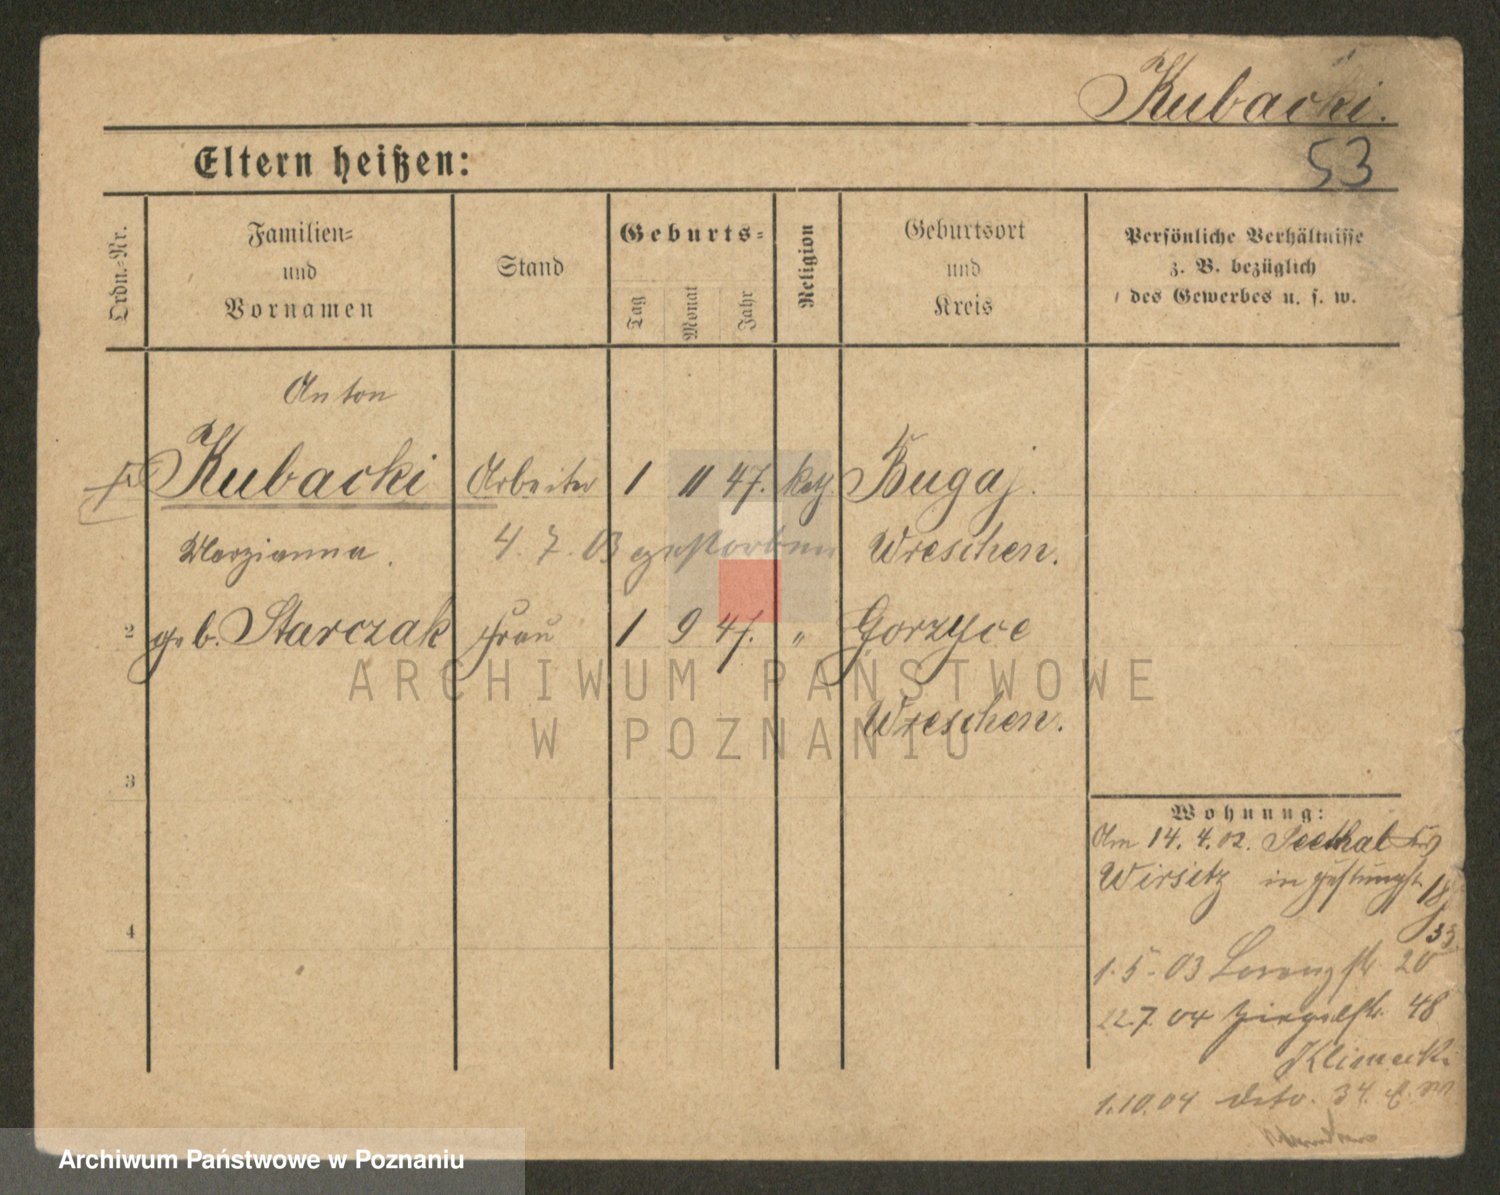 Kubacki.
53
Eltern heißen:
Ordn.-Nr.
Familien-
und
Vornamen
Stand
Geburts-
Tag
Monat
Jahr
Religion
Geburtsort
und
Kreis
Persönliche Verhältnisse
z. B. bezüglich
des Gewerbes u. s. w.
Anton
Kubacki Arbeiter 1 11 47. kath. Bugaj.
Marzianna. 4. 7. 03 gestorben Wreschen.
2 geb. Starczak Frau 1 9 47. " Gorzyce
Wreschen.
ARCHIWUM PAŃSTWOWE
W POZNANIU
3
4
Wohnung:
Am 14. 4. 02. Seethal
Wirsitz in
33
1.5.03 20
22.7.04 48
Klimecki
1.10.04 dito. 34.
Archiwum Państwowe w Poznaniu